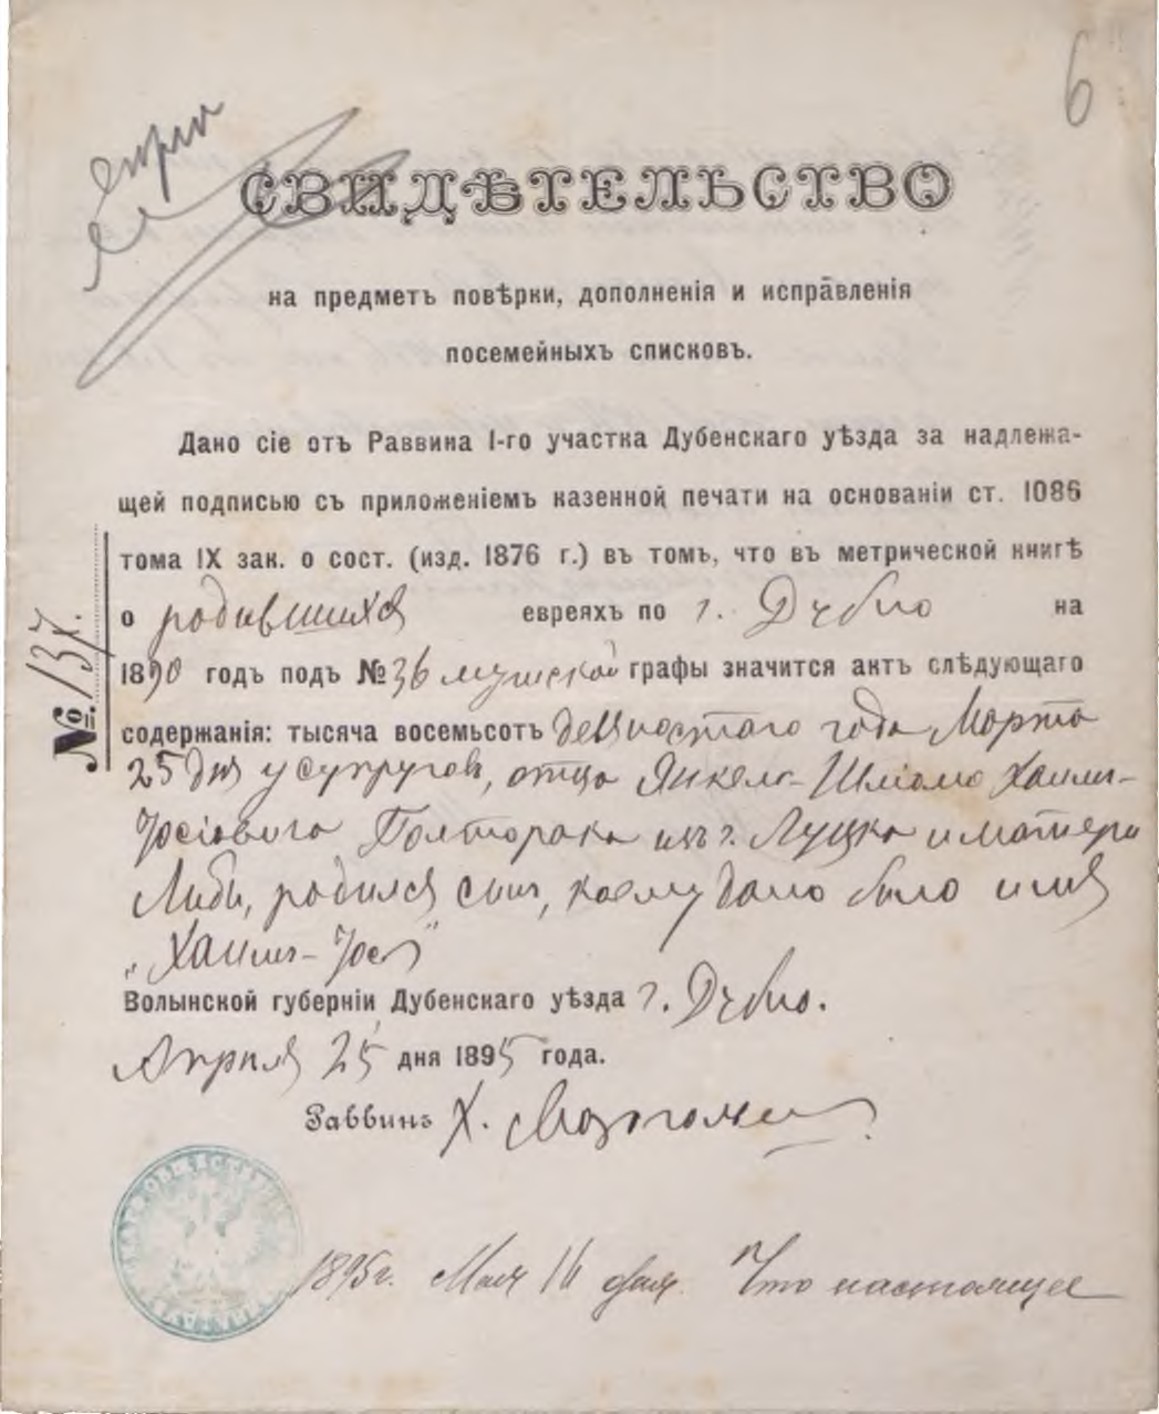 6
СВИДѢТЕЛЬСТВО
на предметъ повѣрки, дополненія и исправленія
посемейныхъ списковъ.
Дано сіе отъ Раввина 1-го участка Дубенскаго уѣзда за надлежа-
щей подписью съ приложеніемъ казенной печати на основаніи ст. 1086
тома IX зак. о сост. (изд. 1876 г.) въ томъ, что въ метрической книгѣ
о родившихся евреяхъ по г. Дубно на
1890 годъ подъ № 36 мужской графы значится актъ слѣдующаго
содержанія: тысяча восемьсотъ девяностаго года Марта
25 дня у супруговъ, отца Янкель-Шлiома Хаимъ-
Іосіовича Полторака изъ г. Луцка и матери
Либи, родился сынъ, коему дано было имя
„Хаимъ-Іось"
Волынской губерніи Дубенскаго уѣзда г. Дубно.
Апрѣля 25 дня 1895 года.
Раввинъ Х.
№ 137.
1895 г. Мая 16 дня. Что настоящее